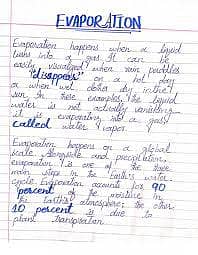 EVAPORATION
Evaporation happens when a liquid
turns into a gas. It can be
easily visualized when rain puddles
"disappear" on a hot day
or when wet clothes dry in the
sun. In these examples, the liquid
water is not actually vanishing
it is evaporating into a gas
called water vapor.
Evaporation happens on a global
scale. Alongside and precipitation,
evaporation is one of the three
main steps in the Earth's water
cycle. Evaporation accounts for 90
percent of the moisture in
the Earth's atmosphere; the other
10 percent is due to
plant transpiration.